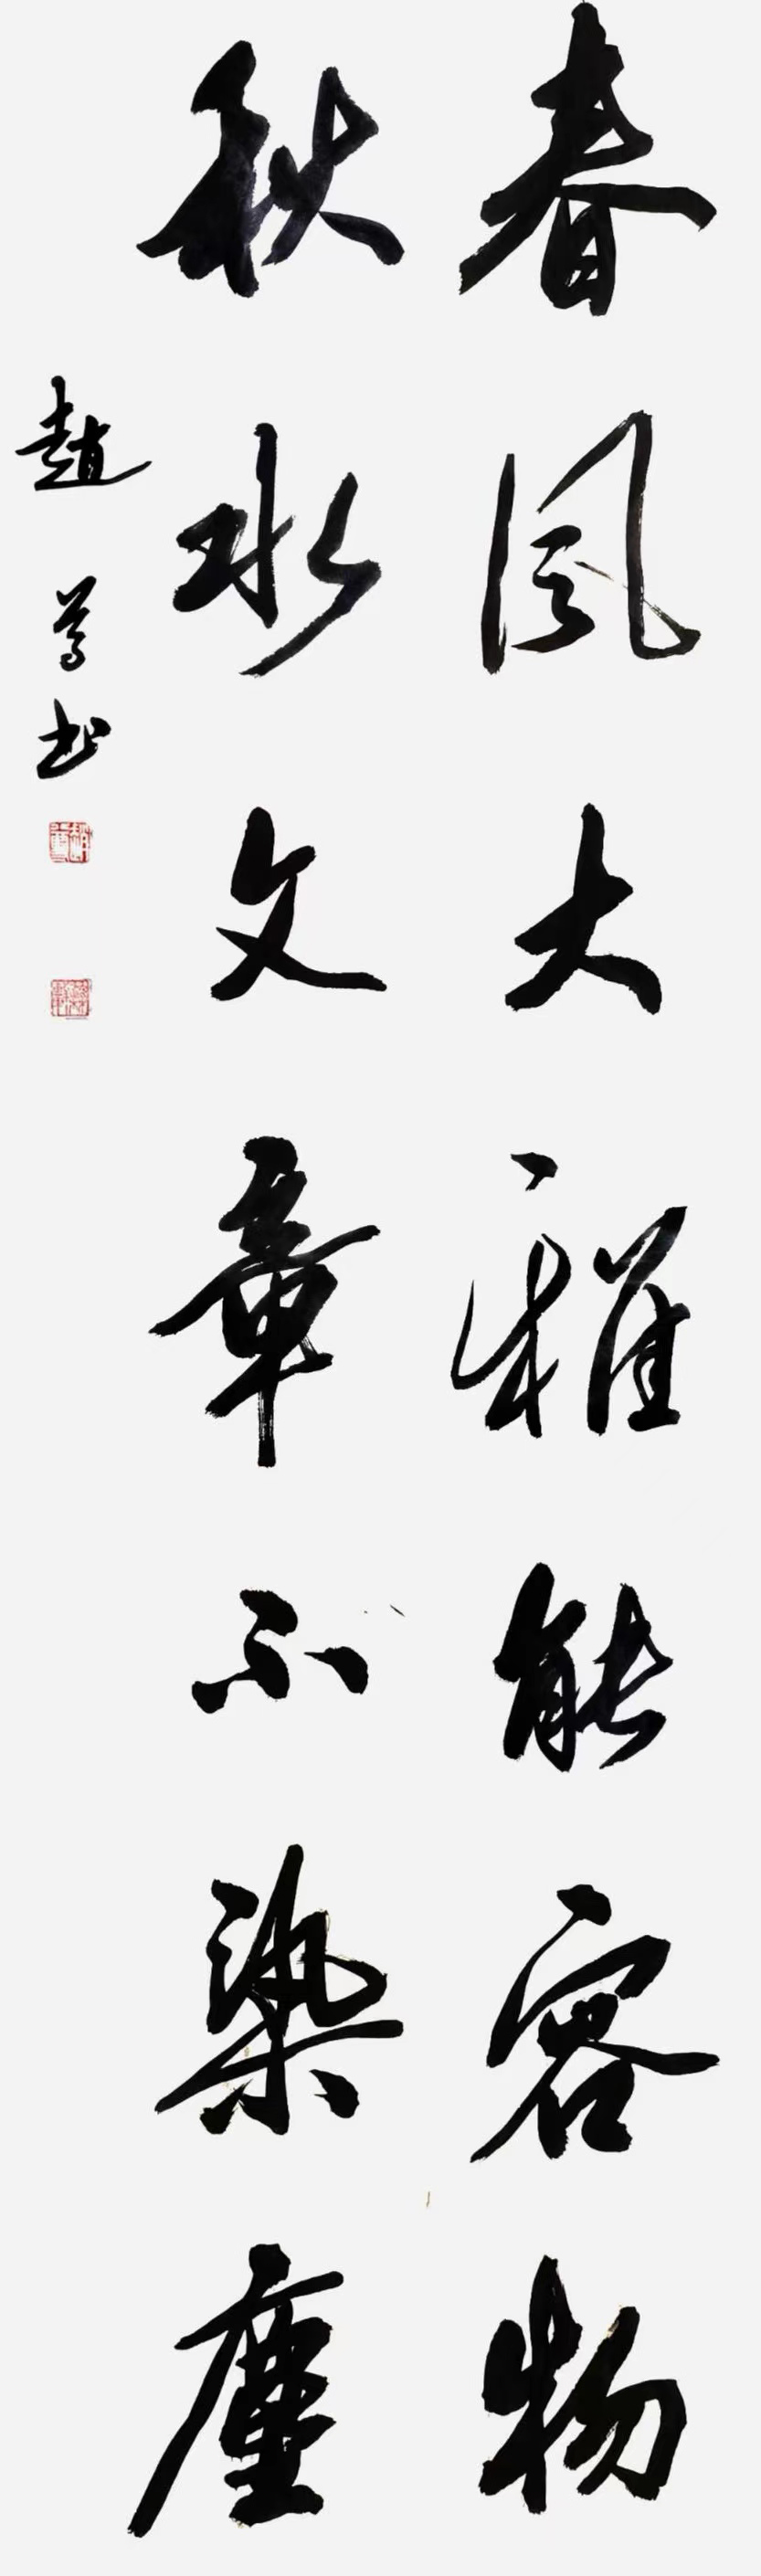 春風大雅能容物
秋水文章不染塵
趙　書